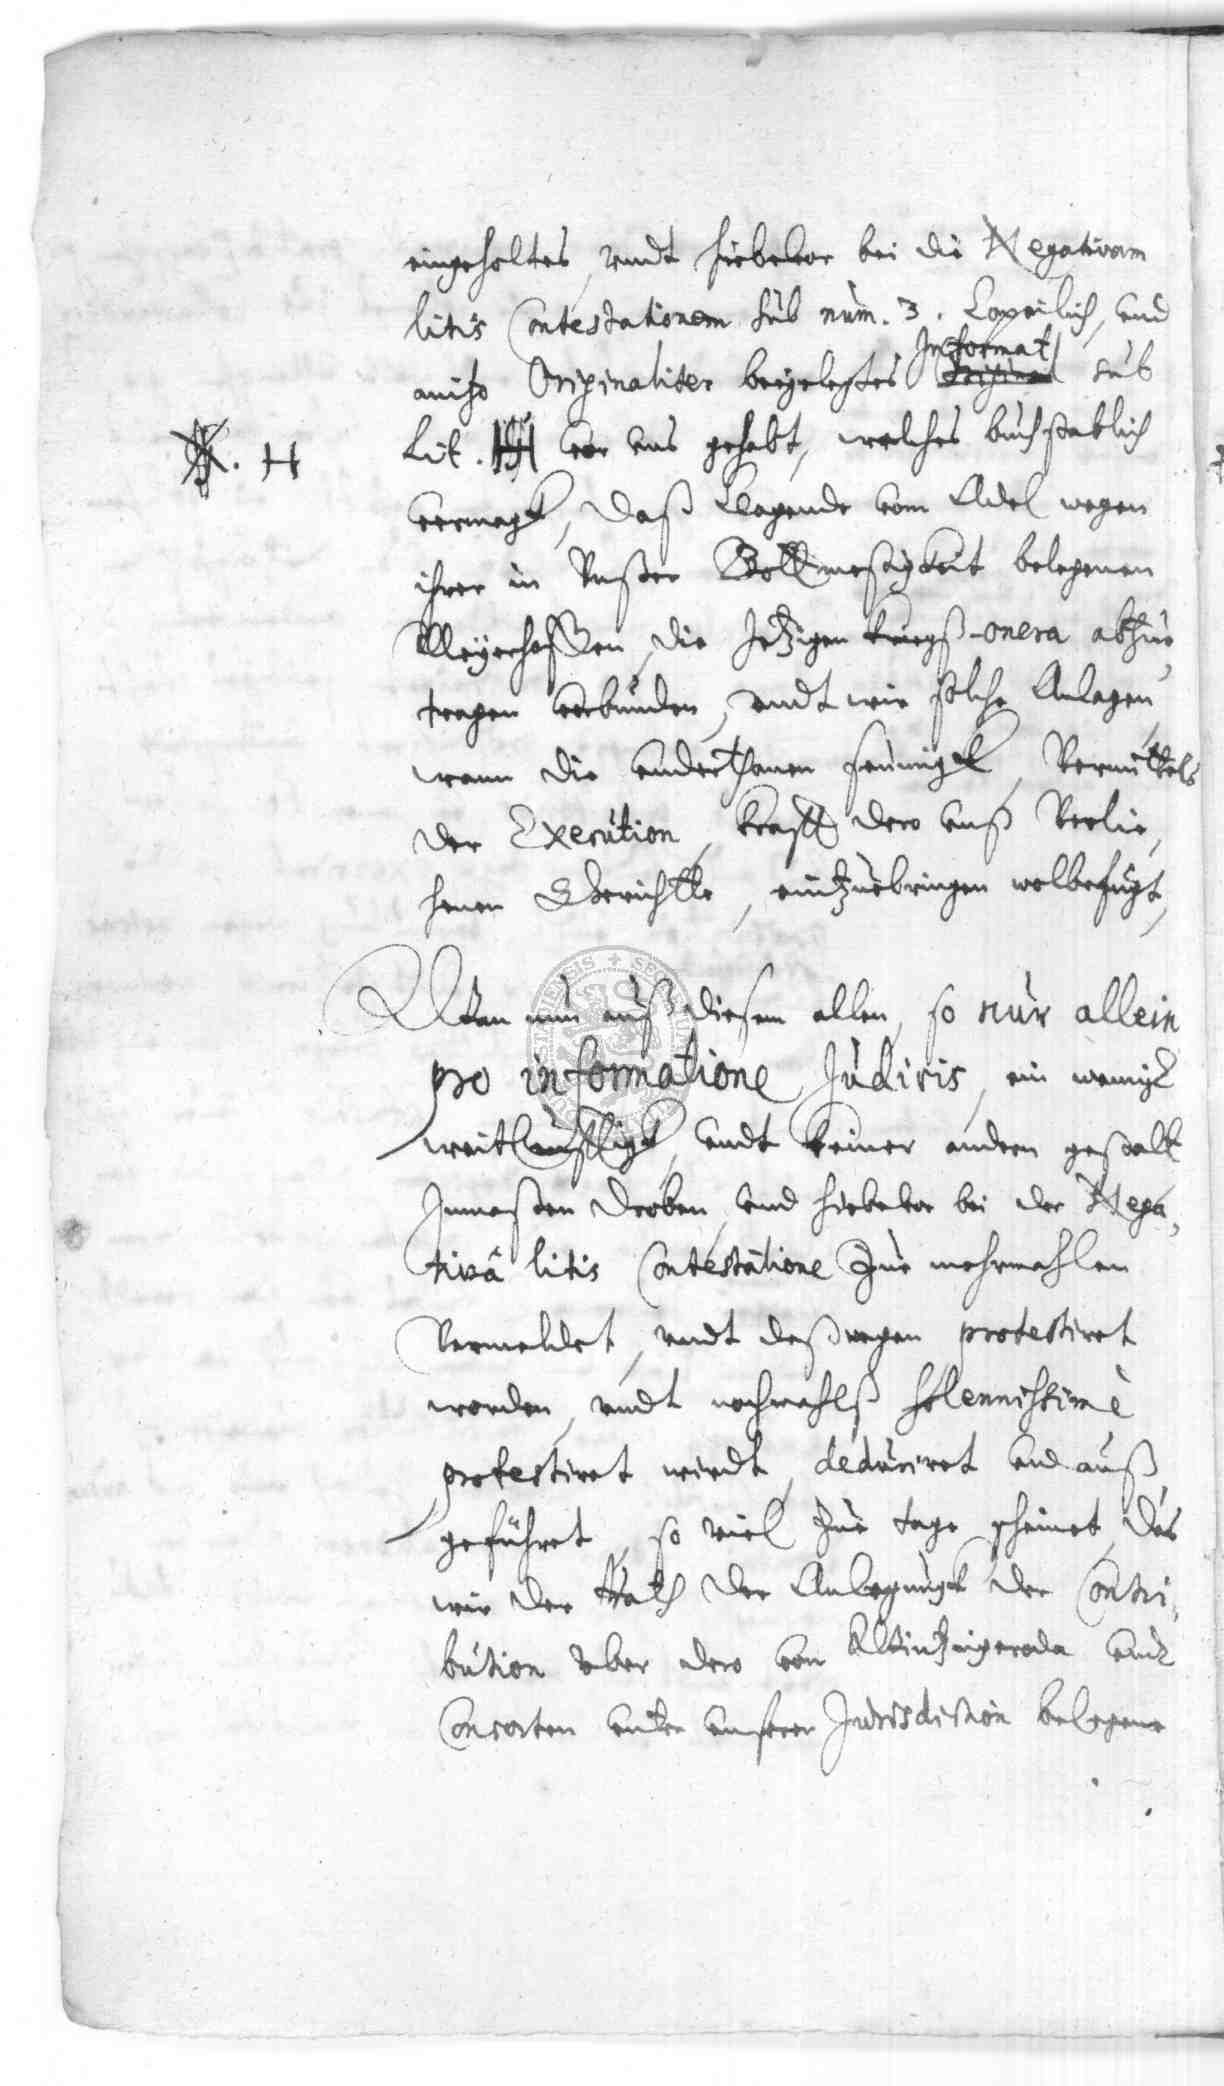 eingeholtes, undt hiebevor bei die Negativam
litis Contestationem sub num. 3. Copeilich, und
anitzo Originaliter beygelegtes Informat sub
Lit. H vor uns gehabt, welches buchstablich
vermagk, daß Clagende vom Adel wegen
ihrer in Unßer Bottmeßigkeit belegenen
Meyerhoffen, die Jetzigen kriegß-onera abzue
tragen verbunden, undt wir solche Anlagen,
wann die underthanen seumigk, Vermittels
der Execution, krafft dero unß Verlie,
henen Gerichtte, eintzuebringen wolbefugt,
H
Wan nun auß diesem allen, so nur allein
pro informatione Judicis, ein wenigk
weitleufftigk, undt keiner andern gestalt
Inmaßen droben, und hiebevor bei der Nega,
tivâ litis Contestatione zue mehrmahlen
Vermeldet, undt deßwegen protestiret
worden, undt nochmahlß solennissimè
protestiret wirdt, deduciret und auß
geführet, so viel zue tage scheinet, das
wir der Rath der Anlegungk der Contri,
bution uber dero von Wintzingeroda und
Consorten unter unserer Jurisdiction belegene